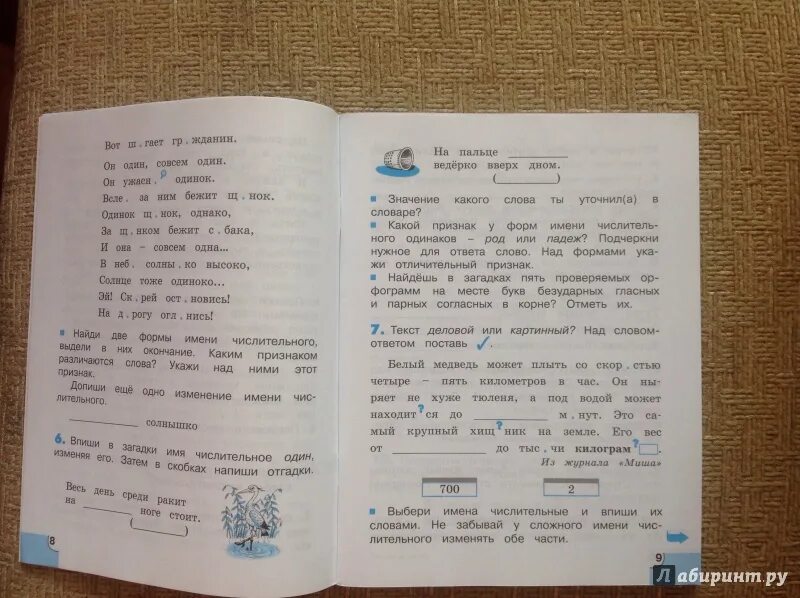 Вот ш . гает гр . жданин.
Он один, совсем один.
Он ужасн . о одинок.
Всле . за ним бежит щ . нок.
Одинок щ . нок, однако,
За щ . нком бежит с . бака,
И она – совсем одна...
В неб . солны . ко высоко,
Солнце тоже одиноко...
Эй! Ск . рей ост . новись!
На д . рогу огл . нись!
Найди две формы имени числительного,
выдели в них окончание. Каким признаком
различаются слова? Укажи над ними этот
признак.
Допиши ещё одно изменение имени чис-
лительного.
__________ солнышко
6. Впиши в загадки имя числительное один,
изменяя его. Затем в скобках напиши отгадки.
Весь день среди ракит
на ________ ноге стоит.
(________)
8
На пальце ________
ведёрко вверх дном.
(________)
Значение какого слова ты уточнил(а) в
словаре?
Какой признак у форм имени числитель-
ного одинаков – род или падеж? Подчеркни
нужное для ответа слово. Над формами ука-
жи отличительный признак.
Найдёшь в загадках пять проверяемых ор-
фограмм на месте букв безударных гласных
и парных согласных в корне? Отметь их.
7. Текст деловой или картинный? Над словом-
ответом поставь ✓.
Белый медведь может плыть со скор . стью
четыре – пять километров в час. Он ны-
ряет не хуже тюленя, а под водой может
находит?ся до __________ м . нут. Это са-
мый крупный хищ?ник на земле. Его вес
от ____________ до тыс . чи килограм?□.
Из журнала «Миша»
700
2
Выбери имена числительные и впиши их
словами. Не забывай у сложного имени чис-
лительного изменять обе части.
9
Лабиринт.ру